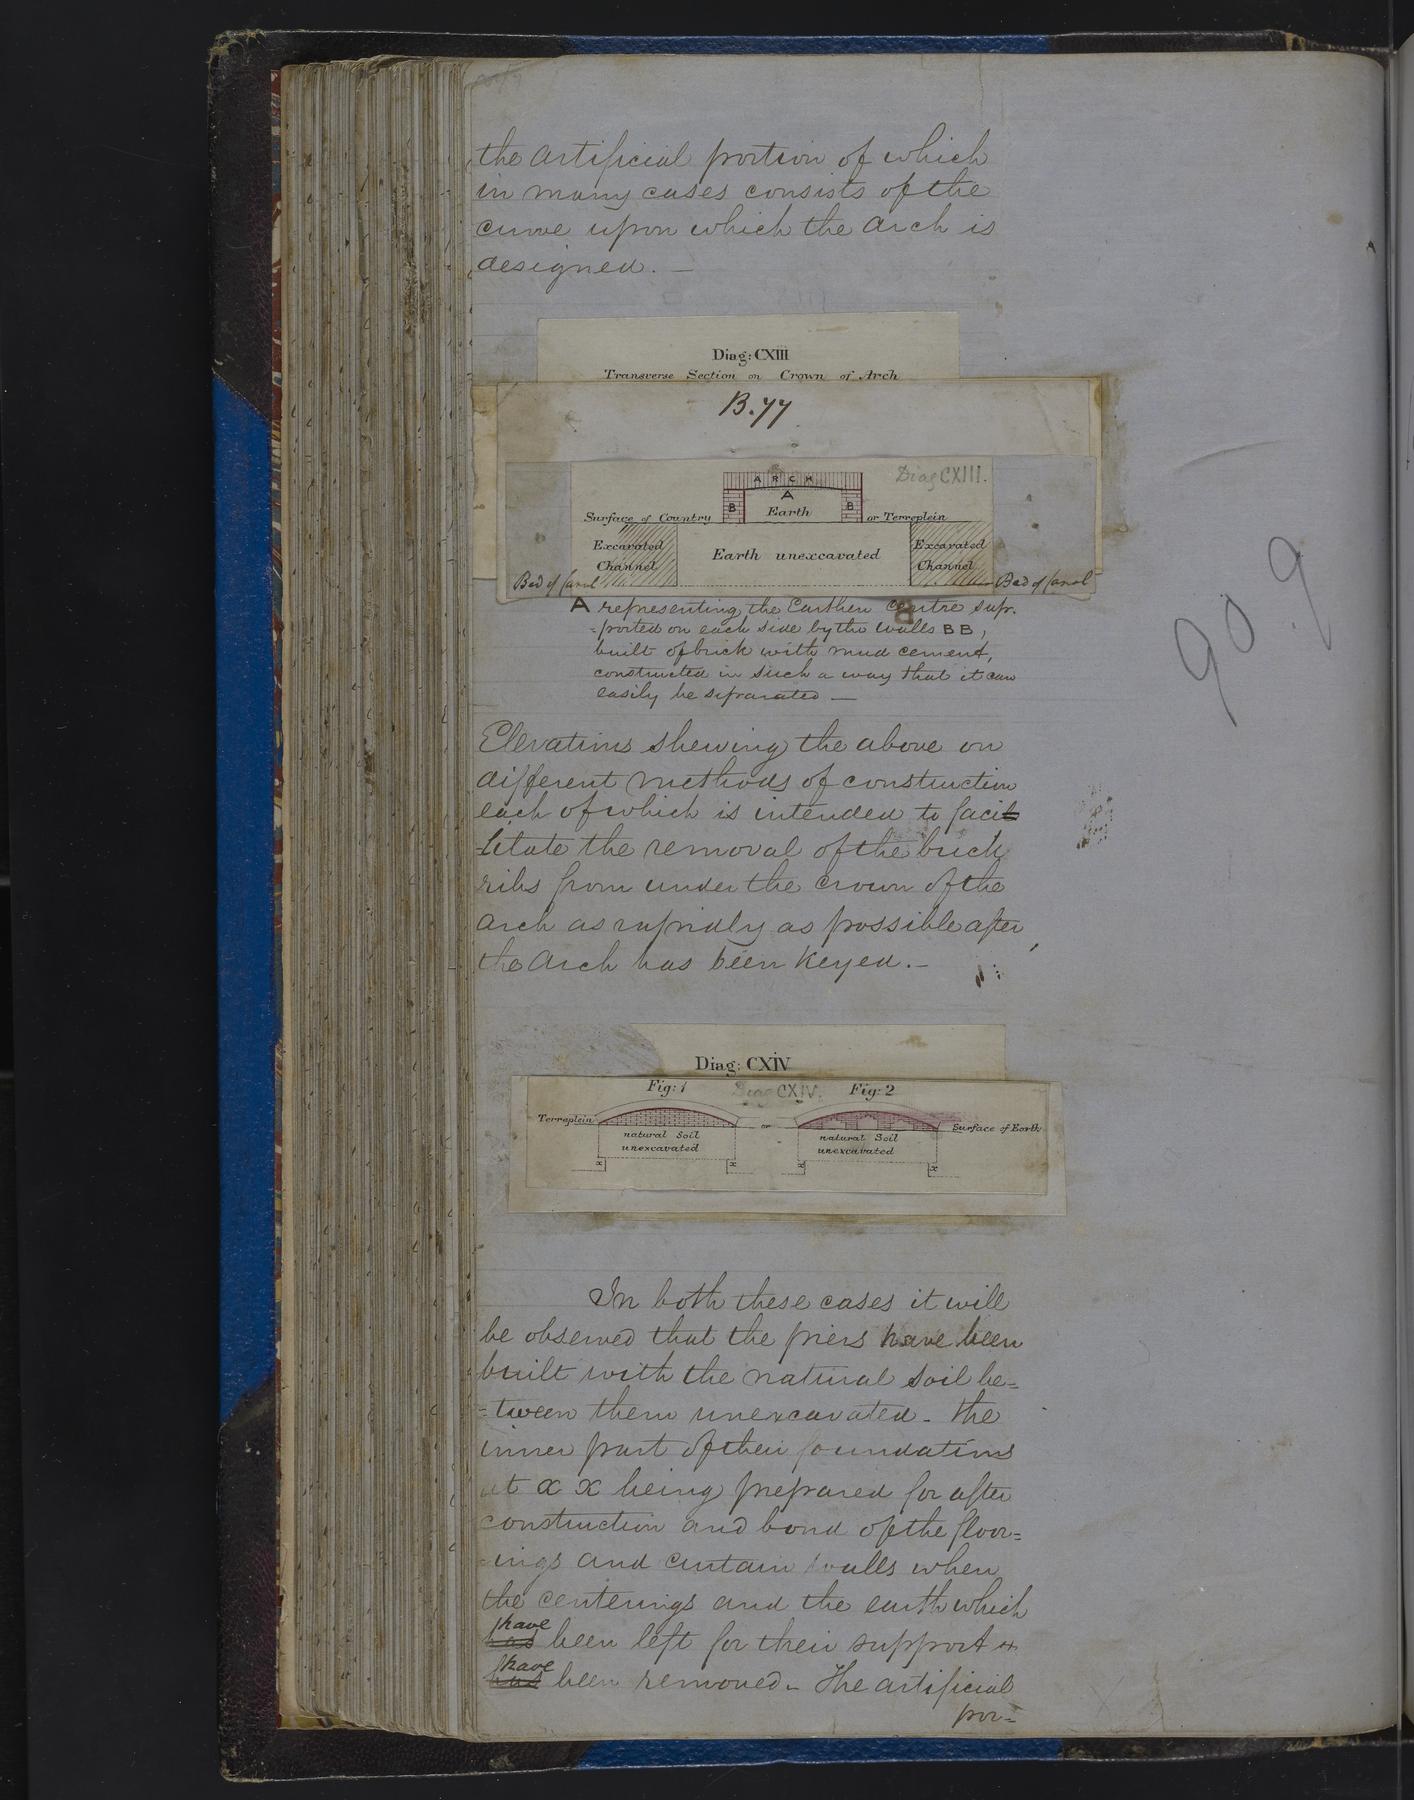 the artificial portion of which
in many cases consists of the
curve upon which the arch is
designed. —
Diag: CXIII
Transverse Section on Crown of Arch
B.77
Diag CXIII.
ARCH
A
B
Earth
B
Surface of Country
or Terreplein
Excavated
Channel
Earth unexcavated
Excavated
Channel
Bed of Canal
Bed of Canal
A representing the Earthen Centre sup-
=ported on each side by the walls BB,
built of brick with mud cement,
constructed in such a way that it can
easily be separated —
Elevations shewing the above on
different methods of construction
each of which is intended to faci
-litate the removal of the brick
ribs from under the crown of the
arch as rapidly as possible after
the Arch has been Keyed. —
Diag: CXIV
Fig: 1
Diag CXIV.
Fig: 2
Terreplein
or
Surface of Earth
natural Soil
unexcavated
natural Soil
unexcavated
x
x
x
x
In both these cases it will
be observed that the piers have been
built with the natural soil be=
=tween them unexcavated - the
inner part of their foundations
at x x being prepared for after
construction and bond of the floor=
=ings and curtain walls when
the centerings and the earth which
have
has been left for their support &
have
has been removed - The artificial
por=
90.9